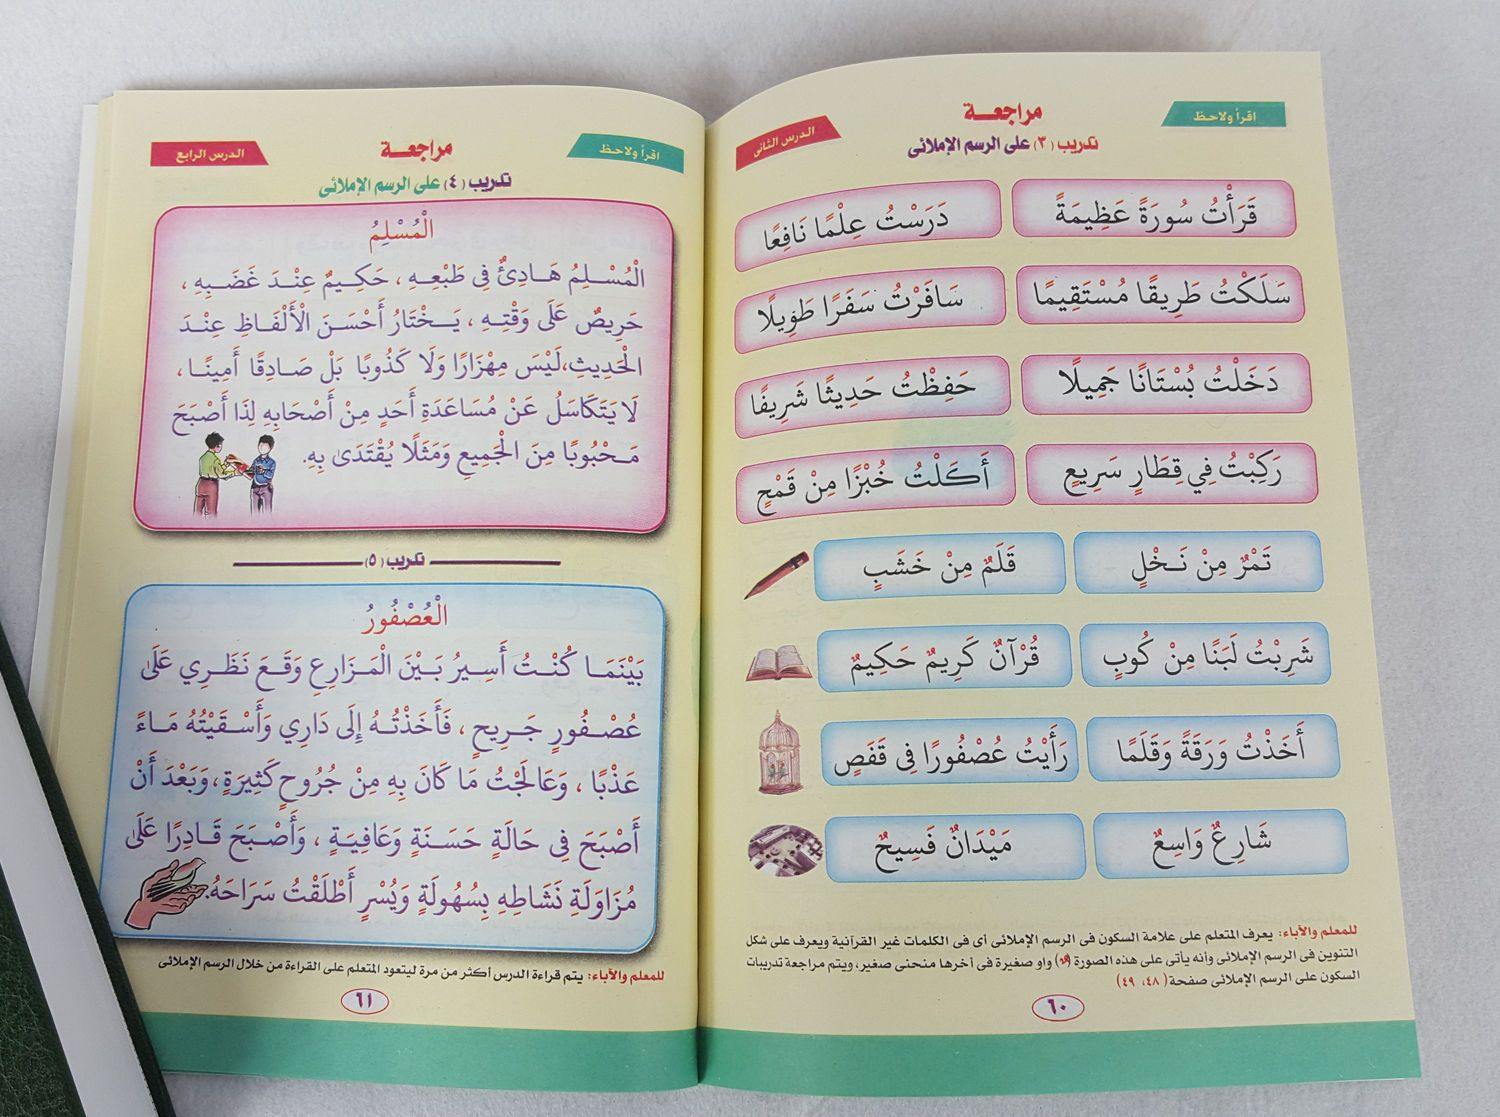 اقرأ ولاحظ
مراجعـــة
الدرس الثانى
تدريب (٣) على الرسم الإملائى
قَرَأْتُ سُورَةً عَظِيمَةً
دَرَسْتُ عِلْمًا نَافِعًا
سَلَكْتُ طَرِيقًا مُسْتَقِيمًا
سَافَرْتُ سَفَرًا طَوِيلًا
دَخَلْتُ بُسْتَانًا جَمِيلًا
حَفِظْتُ حَدِيثًا شَرِيفًا
رَكِبْتُ فِي قِطَارٍ سَرِيعٍ
أَكَلْتُ خُبْزًا مِنْ قَمْحٍ
تَمْرٌ مِنْ نَخْلٍ
قَلَمٌ مِنْ خَشَبٍ
شَرِبْتُ لَبَنًا مِنْ كُوبٍ
قُرْآنٌ كَرِيمٌ حَكِيمٌ
أَخَذْتُ وَرَقَةً وَقَلَمًا
رَأَيْتُ عُصْفُورًا فِى قَفَصٍ
شَارِعٌ وَاسِعٌ
مَيْدَانٌ فَسِيحٌ
للمعلم والآباء: يعرف المتعلم على علامة السكون فى الرسم الإملائى أى فى الكلمات غير القرآنية ويعرف على شكل
التنوين فى الرسم الإملائى وأنه يأتى على هذه الصورة (ـٌ) واو صغيرة فى أخرها منحنى صغير، ويتم مراجعة تدريبات
السكون على الرسم الإملائى صفحة (٤٨، ٤٩)
٦٠
اقرأ ولاحظ
مراجعـــة
الدرس الرابع
تدريب (٤) على الرسم الإملائى
الْمُسْلِمُ
الْمُسْلِمُ هَادِئٌ فِى طَبْعِهِ ، حَكِيمٌ عِنْدَ غَضَبِهِ ،
حَرِيصٌ عَلَى وَقْتِهِ ، يَخْتَارُ أَحْسَنَ الْأَلْفَاظِ عِنْدَ
الْحَدِيثِ،لَيْسَ مِهْزَارًا وَلَا كَذُوبًا بَلْ صَادِقًا أَمِينًا ،
لَا يَتَكَاسَلُ عَنْ مُسَاعَدَةِ أَحَدٍ مِنْ أَصْحَابِهِ لِذَا أَصْبَحَ
مَحْبُوبًا مِنَ الْجَمِيعِ وَمَثَلًا يُقْتَدَى بِهِ.
تدريب (٥)
الْعُصْفُورُ
بَيْنَمَا كُنْتُ أَسِيرُ بَيْنَ الْمَزَارِعِ وَقَعَ نَظَرِي عَلَى
عُصْفُورٍ جَرِيحٍ ، فَأَخَذْتُهُ إِلَى دَارِي وَأَسْقَيْتُهُ مَاءً
عَذْبًا ، وَعَالَجْتُ مَا كَانَ بِهِ مِنْ جُرُوحٍ كَثِيرَةٍ،وَبَعْدَ أَنْ
أَصْبَحَ فِى حَالَةٍ حَسَنَةٍ وَعَافِيَةٍ ، وَأَصْبَحَ قَادِرًا عَلَى
مُزَاوَلَةِ نَشَاطِهِ بِسُهُولَةٍ وَيُسْرٍ أَطْلَقْتُ سَرَاحَهُ.
للمعلم والآباء: يتم قراءة الدرس أكثر من مرة ليتعود المتعلم على القراءة من خلال الرسم الإملائى
٦١